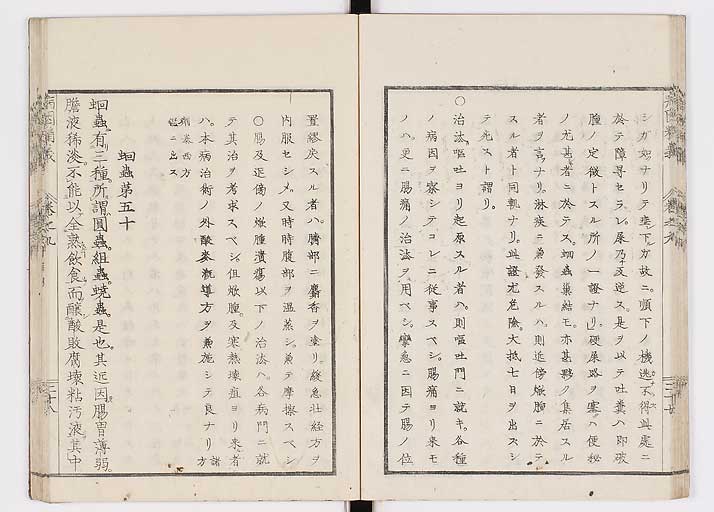 シガ如ナリテ垂下ガ故ニ順下ノ機遂不得此處ニ
於テ障㝵セラレ屎乃チ反逆ス是ヲ以テ吐糞ハ即破
腫ノ定徴トスル所ノ一證ナリ硬屎路ヲ塞ハ便秘
ノ尤甚者ニ於テス蚘蟲巢結モ亦甚夥ク集居スル
者ヲ言ナリ淋疾ニ兼發スルハ則近傍焮腫ニ於テ
スル者ト同軌ナリ此證尤危險大抵七日ヲ出スシ
テ死スト謂リ
○治法嘔吐ヨリ起原スル者ハ則嘔吐門ニ就キ各種
ノ病因ヲ察シテコレニ従事スベシ腸痛ヨリ来モ
ノハ更ニ腸痛ノ治法ヲ用ベシ攣急ニ因テ腸ノ位
置繆戾スル者ハ臍部ニ麝香ヲ塗リ緩急壮経方ヲ
内服セシメ又時時腹部ヲ温蒸シ兼テ摩擦スベシ
○腸及近傍ノ焮腫潰瘍以下ノ治法ハ各病門ニ就
テ其治ヲ考求スベシ但焮腫及寒熱壊疽ヨリ来者
ハ本病治術ノ外酸麥漑導方ヲ兼施シテ良ナリ 諸方
劑案西方
鑑ニ出ス
蚘蟲第五十
蚘蟲有三種所謂圓蟲組蟲蟯蟲是也其近因腸胃薄弱
膽液稀淡不能以全熟飲食而釀酸敗腐壊粘汚液其中